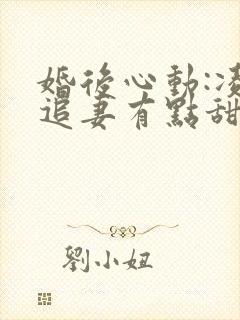 婚後心動:凌
追妻有點甜
劉小妞